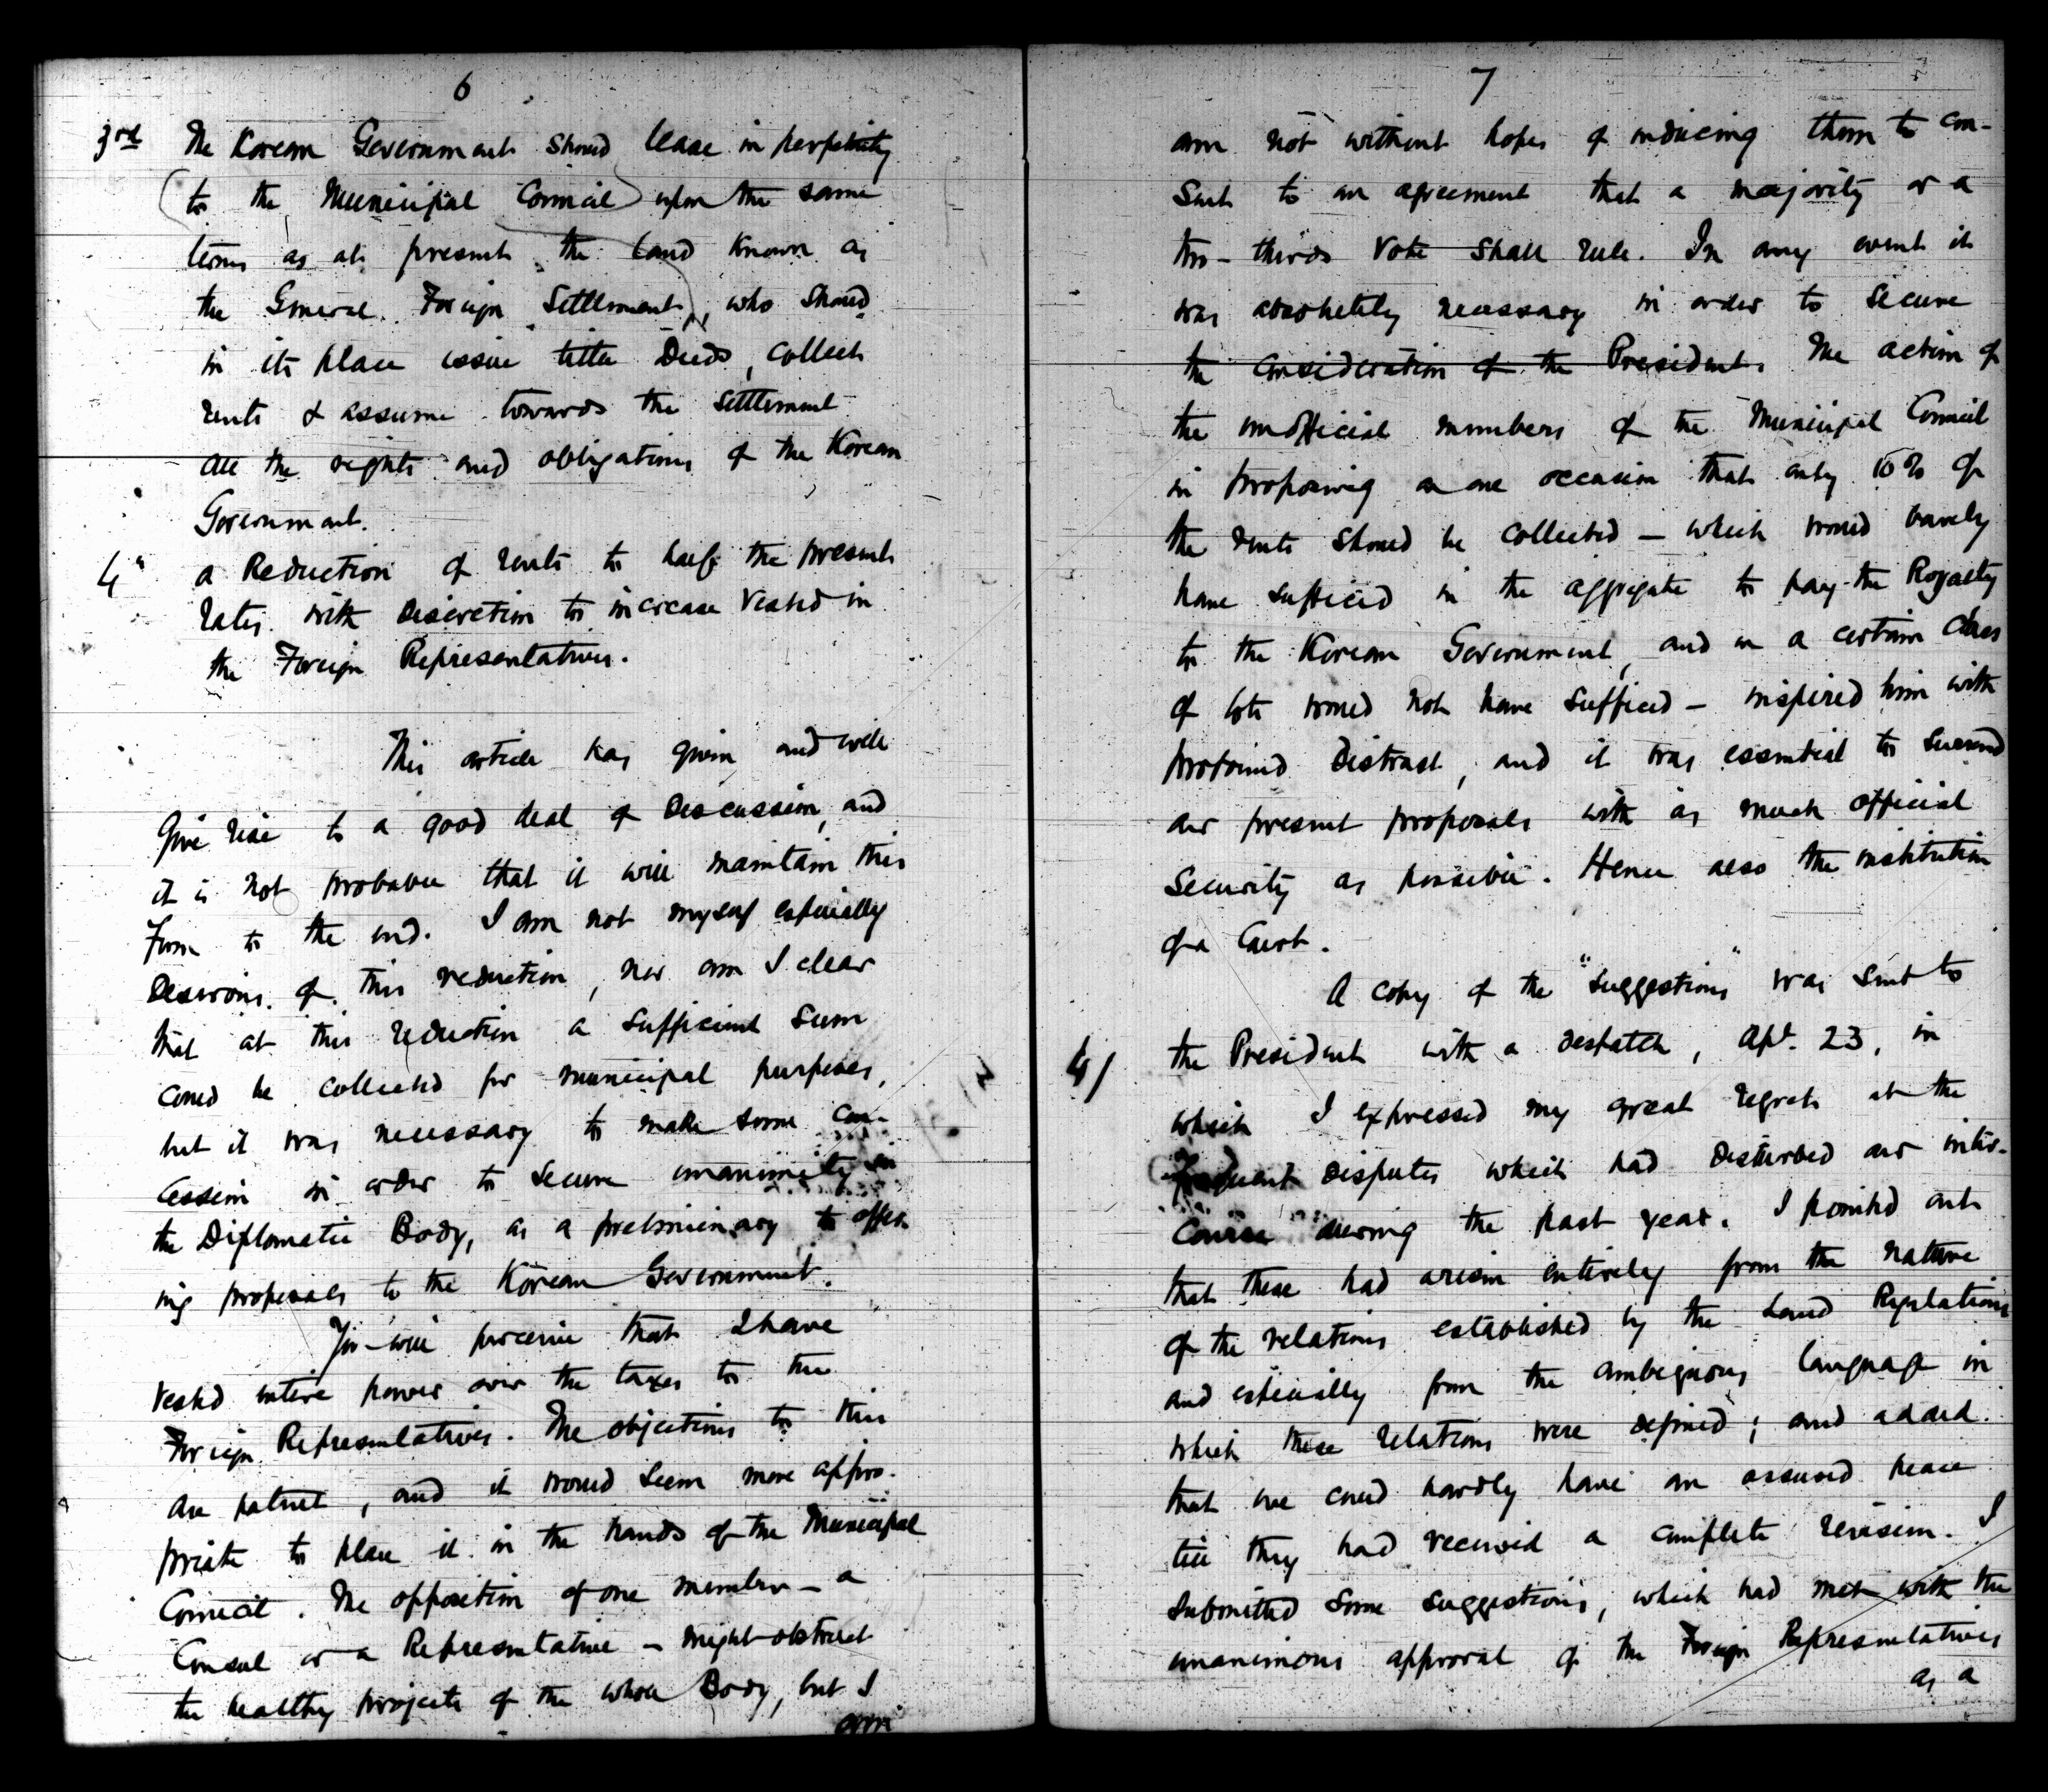 6
3rd The Korean Government should lease in perpetuity
(to the Municipal Council) upon the same
terms as at present the land known as
the General Foreign Settlement, who should
in its place issue title Deeds, collect
rents & assume towards the Settlement
all the rights and obligations of the Korean
Government.
4" a Reduction of rents to half the present
rates with discretion to increase vested in
the Foreign Representatives.
This article has given and will
give rise to a good deal of discussion, and
it is not probable that it will maintain this
form to the end. I am not myself especially
desirous of this reduction, nor am I clear
that at this reduction a sufficient sum
could be collected for municipal purposes,
but it was necessary to make some con-
cession in order to secure unanimity in
the Diplomatic Body, as a preliminary to offer-
ing proposals to the Korean Government.
You will perceive that I have
vested entire power over the taxes to the
Foreign Representatives. The objections to this
are patent, and it would seem more appro-
priate to place it in the hands of the Municipal
Council. The opposition of one member – a
Consul or a Representative – might obstruct
the healthy projects of the whole Body, but I
am
7
am not without hopes of inducing them to con-
sent to an agreement that a majority or a
two-thirds vote shall rule. In any event it
was absolutely necessary in order to secure
the consideration of the President. The action of
the unofficial members of the Municipal Council
in proposing on one occasion that only 10% of
the rents should be collected – which would barely
have sufficed in the aggregate to pay the Royalty
to the Korean Government, and in a certain class
of lots would not have sufficed – inspired him with
profound distrust, and it was essential to surround
our present proposals with as much official
security as possible. Hence also the institution
of a Court.
A copy of the "suggestions" was sent to
4/ the President with a despatch, Apl. 23, in
which I expressed my great regret at the
frequent disputes which had disturbed our inter-
course during the past year. I pointed out
that these had arisen entirely from the nature
of the relations established by the Land Regulations
and especially from the ambiguous language in
which these relations were defined; and added
that we could hardly have an assured peace
till they had received a complete revision. I
submitted some suggestions, which had met with the
unanimous approval of the Foreign Representatives
as a